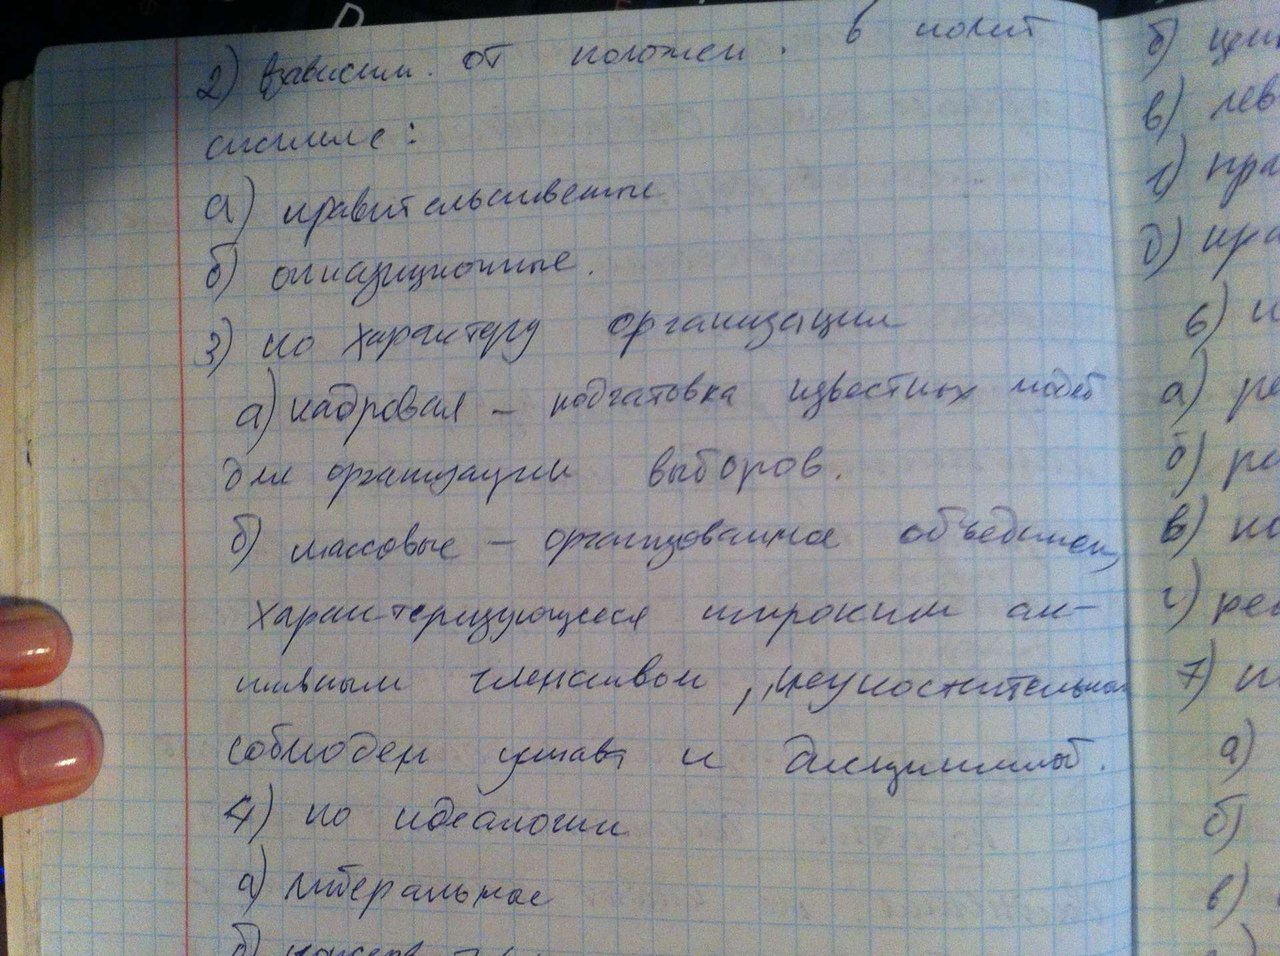 2) взависим. от положен. в полит
системе:
а) правительственные
б) оппазиционные.
3) по характеру организации
а) кадровая – подгатовка известных людей
для организации выборов.
б) массовые – организованное объединен,
характеризующееся широким ак-
тивным членством, неукоснительным
соблюден устава и дисциплиной.
4) по идеалогии
а) либеральные
б) консерв
б) цен
в) лев
г) пра
д) пра
6)
а) ре
б) ре
в) ко
г) рел
7)
а)
б)
в)